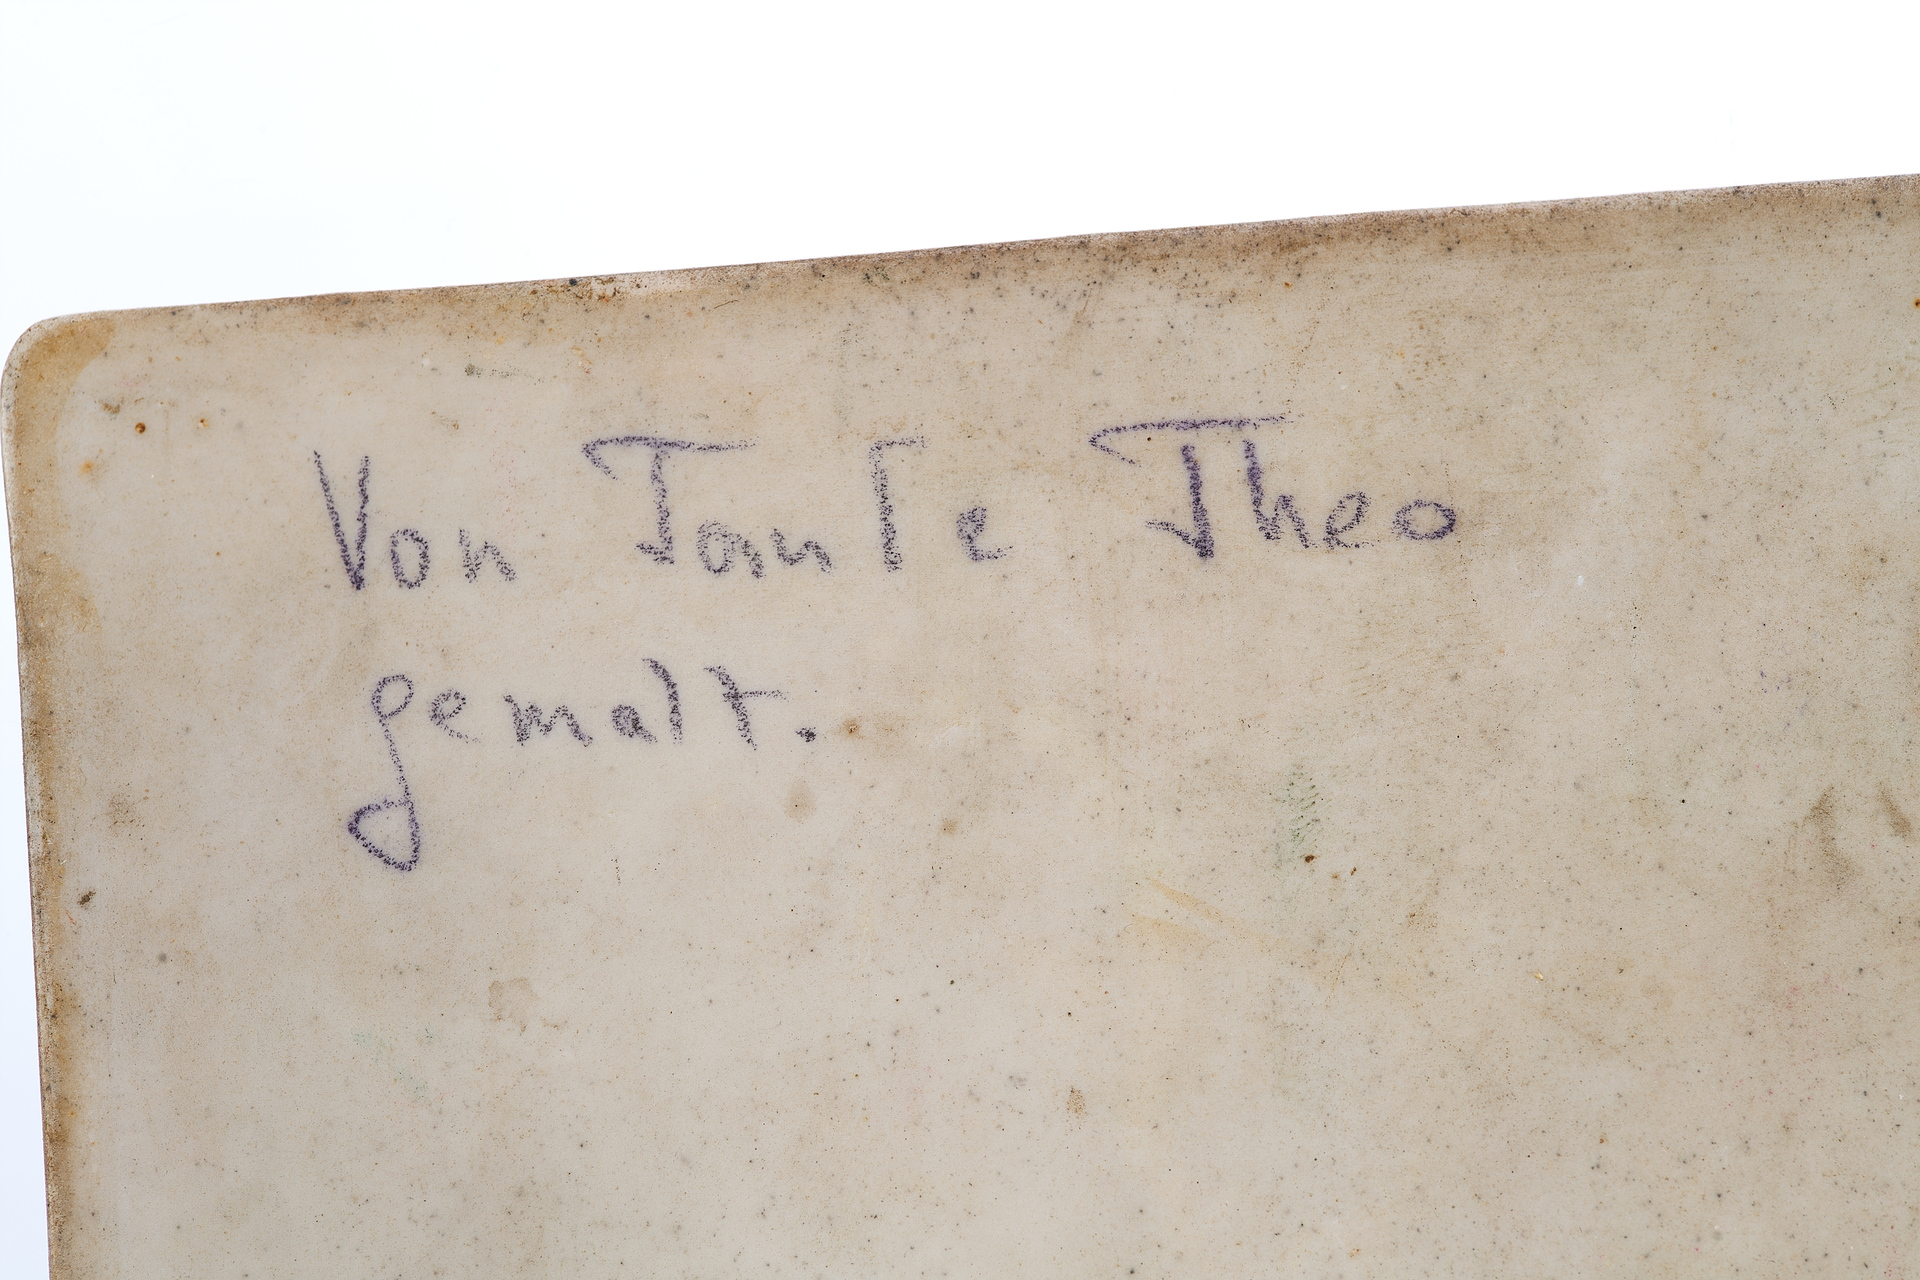 Von Tante Theo
gemalt.